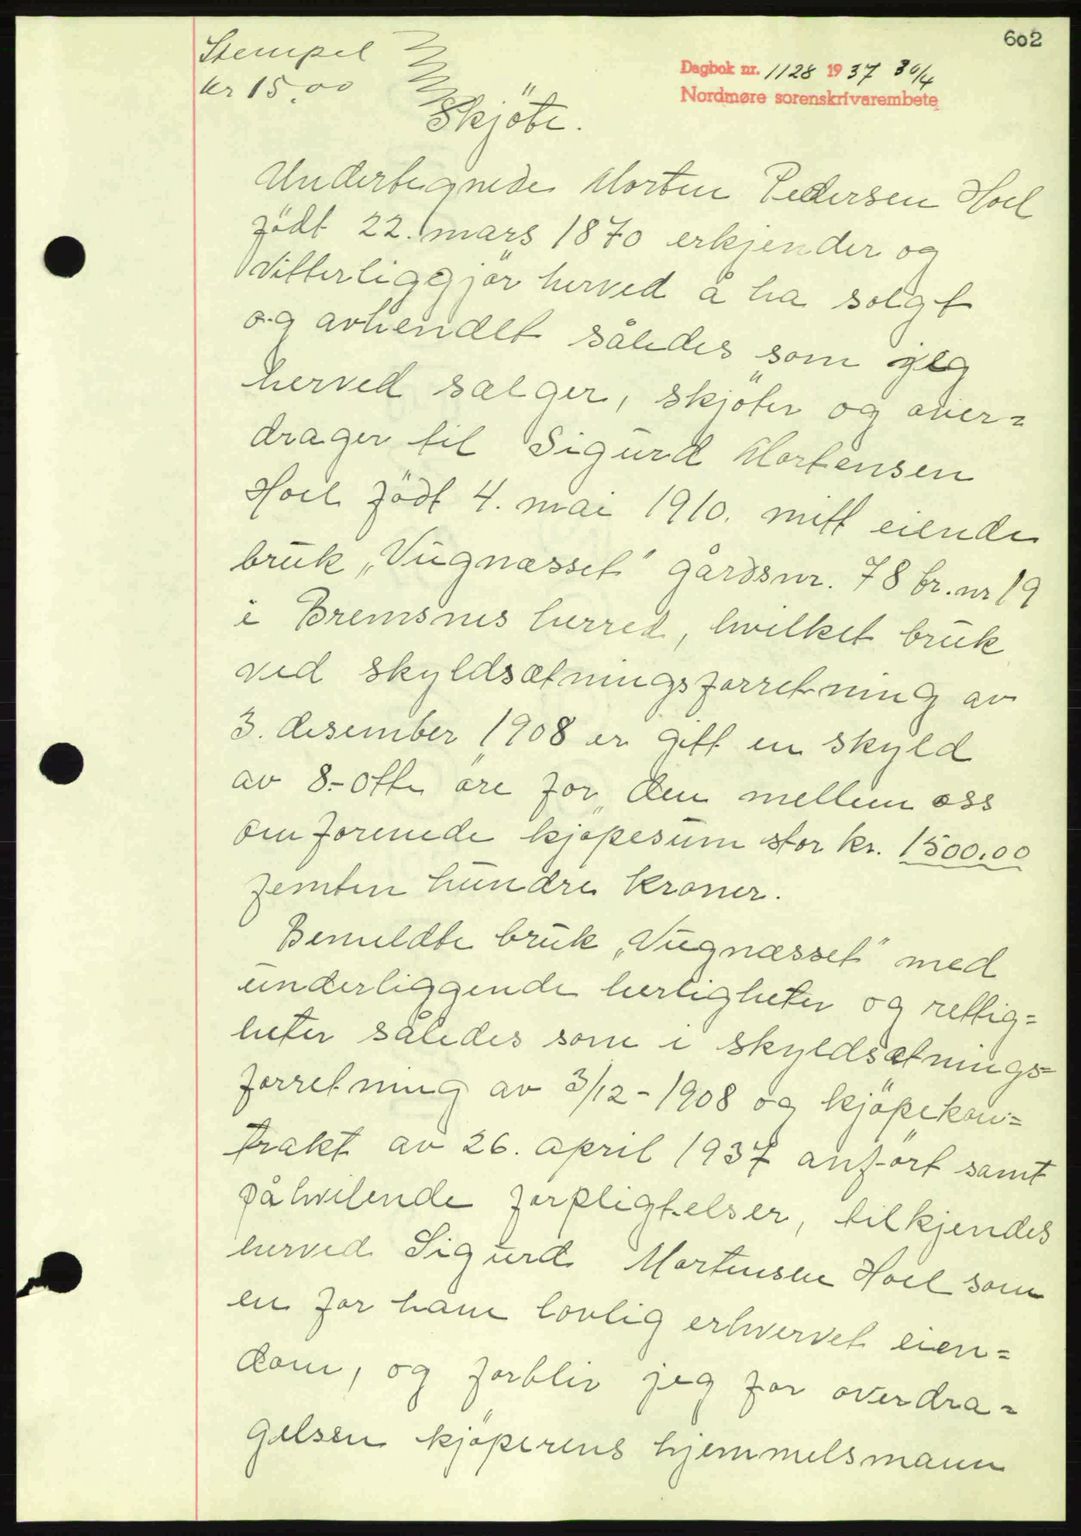 602
Stempel
kr 15.00
Dagbok nr. 1128 1937 30/4
Nordmøre sorenskrivarembete
Skjöte.
Undertegnede Morten Pedersen Hoel
född 22. mars 1870 erkjender og
vitterliggjör herved å ha solgt
og avhendet således som jeg
herved sælger, skjöter og over=
drager til Sigurd Mortensen
Hoel född 4. mai 1910. mitt eiende
bruk „Vugnæsset" gårdsnr. 78 br. nr 19
i Bremsnes herred, hvilket bruk
ved skyldsætningsforretning av
3. desember 1908 er gitt en skyld
av 8.- otte öre for den mellem oss
omforenede kjöpesum stor kr. 1500.00
femten hundre kroner.
Bemeldte bruk „Vugnæsset" med
underliggende herligheter og rettig=
heter således som i skyldsætnings=
forretning av 3/12-1908 og kjöpekon=
trakt av 26. april 1937 anfört samt
påhvilende forpligtelser, tilkjendes
herved Sigurd Mortensen Hoel som
en for ham lovlig erhvervet eien=
dom, og forblir jeg for overdra=
gelsen kjöperens hjemmelsmann